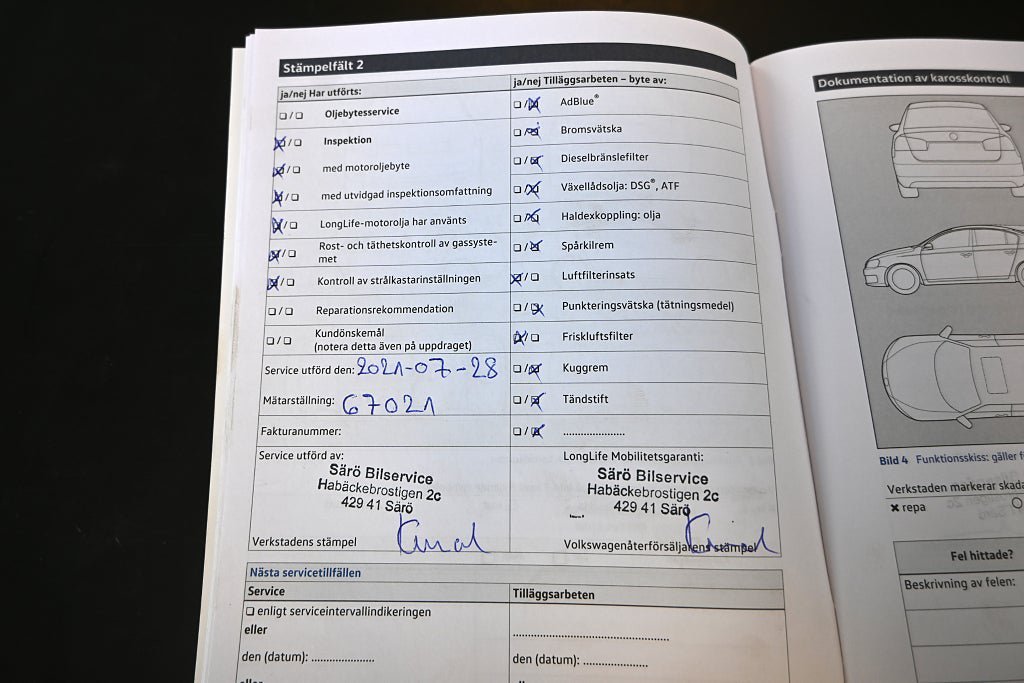 Stämpelfält 2
ja/nej Har utförts:
☐ / ☐ Oljebytesservice
☒ / ☐ Inspektion
☒ / ☐ med motoroljebyte
☒ / ☐ med utvidgad inspektionsomfattning
☒ / ☐ LongLife-motorolja har använts
☒ / ☐ Rost- och täthetskontroll av gassyste-
met
☒ / ☐ Kontroll av strålkastarinställningen
☐ / ☐ Reparationsrekommendation
☐ / ☐ Kundönskemål
(notera detta även på uppdraget)
Service utförd den: 2021-07-28
Mätarställning: 67021
Fakturanummer:
Service utförd av:
Särö Bilservice
Habäckebrostigen 2c
429 41 Särö
Verkstadens stämpel
ja/nej Tilläggsarbeten – byte av:
☐ / ☒ AdBlue®
☐ / ☒ Bromsvätska
☐ / ☒ Dieselbränslefilter
☐ / ☒ Växellådsolja: DSG®, ATF
☐ / ☒ Haldexkoppling: olja
☐ / ☒ Spårkilrem
☒ / ☐ Luftfilterinsats
☐ / ☒ Punkteringsvätska (tätningsmedel)
☒ / ☐ Friskluftsfilter
☐ / ☒ Kuggrem
☐ / ☒ Tändstift
☐ / ☒ .....................
LongLife Mobilitetsgaranti:
Särö Bilservice
Habäckebrostigen 2c
429 41 Särö
Volkswagenåterförsäljarens stämpel
Nästa servicetillfällen
Service
☐ enligt serviceintervallindikeringen
eller
den (datum): .....................
eller
Tilläggsarbeten
.....................................................
den (datum): .....................
Dokumentation av karosskontroll
Bild 4 Funktionsskiss: gäller f
Verkstaden markerar skada
✖ repa
Fel hittade?
Beskrivning av felen: